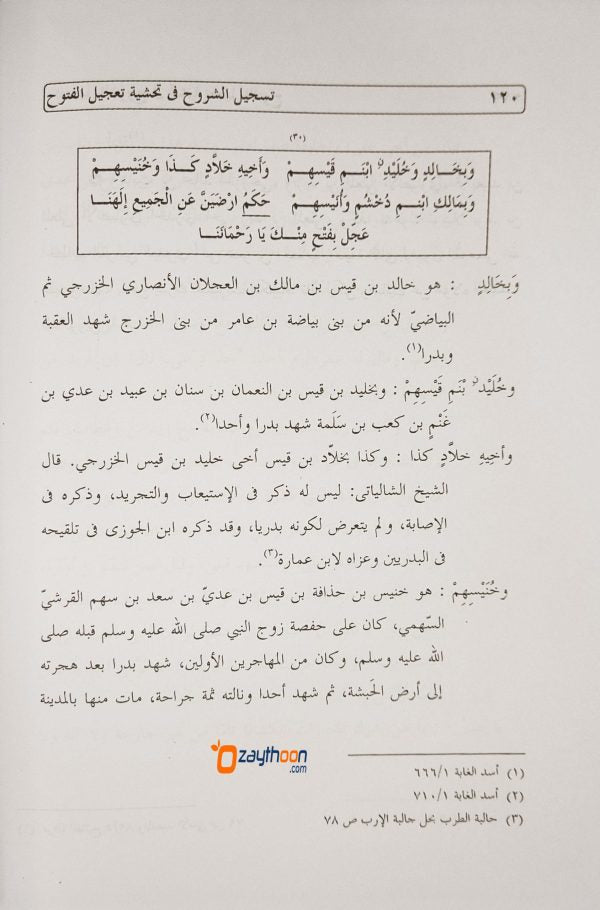 ١٢٠ تسجيل الشروح فى تحشية تعجيل الفتوح
(٣٠)
وَبِخَالِدٍ وَخُلَيْدٍ ابْنَمِ قَيْسِهِمْ وَأَخِيهِ خَلاَّدٍ كَذَا وَخُنَيْسِهِمْ
وَبِمَالِكِ ابْنِمِ دُخْشُمٍ وَأُنَيْسِهِمْ حَكَمُ ارْضَيَنَّ عَنِ الْجَمِيعِ إِلَهَنَا
عَجِّلْ بِفَتْحٍ مِنْكَ يَا رَحْمَانَنَا
وَبِخَالِدٍ : هو خالد بن قيس بن مالك بن العجلان الأنصاري الخزرجي ثم
البياضيّ لأنه من بنى بياضة بن عامر من بنى الخزرج شهد العقبة
وبدرا(١).
وخُلَيْدٍ بْنَمِ قَيْسِهِمْ : وبخليد بن قيس بن النعمان بن سنان بن عبيد بن عدي بن
غَنْمِ بن كعب بن سَلَمة شهد بدرا وأحدا(٢).
وأخِيهِ خلاَّدٍ كذا : وكذا بخلاّد بن قيس أخى خليد بن قيس الخزرجي. قال
الشيخ الشالياتى: ليس له ذكر فى الإستيعاب والتجريد، وذكره فى
الإصابة، ولم يتعرض لكونه بدريا، وقد ذكره ابن الجوزى فى تلقيحه
فى البدريين وعزاه لابن عمارة(٣).
وخُنَيْسِهِمْ : هو خنيس بن حذافة بن قيس بن عديّ بن سعد بن سهم القرشيّ
السّهمي، كان على حفصة زوج النبي صلى الله عليه وسلم قبله صلى
الله عليه وسلم، وكان من المهاجرين الأولين، شهد بدرا بعد هجرته
إلى أرض الحَبشة، ثم شهد أحدا ونالته ثمة جراحة، مات منها بالمدينة
zaythoon
.com
(١) أسد الغابة ٦٦٦/١
(٢) أسد الغابة ٧١٠/١
(٣) حالبة الطرب بحل جالبة الإرب ص ٧٨